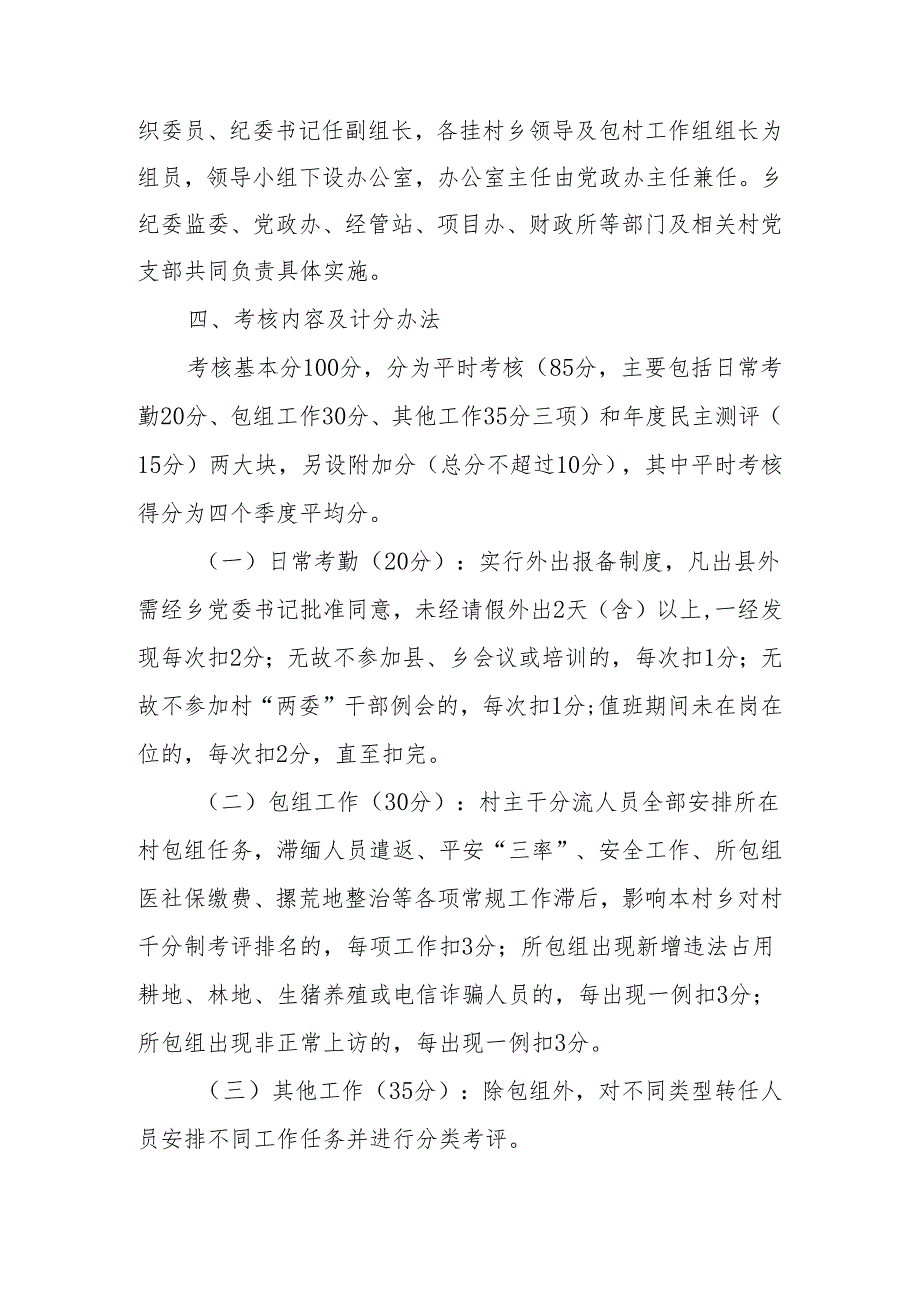 织委员、纪委书记任副组长，各挂村乡领导及包村工作组组长为
组员，领导小组下设办公室，办公室主任由党政办主任兼任。乡
纪委监委、党政办、经管站、项目办、财政所等部门及相关村党
支部共同负责具体实施。
四、考核内容及计分办法
考核基本分100分，分为平时考核（85分，主要包括日常考
勤20分、包组工作30分、其他工作35分三项）和年度民主测评（
15分）两大块，另设附加分（总分不超过10分），其中平时考核
得分为四个季度平均分。
（一）日常考勤（20分）：实行外出报备制度，凡出县外
需经乡党委书记批准同意，未经请假外出2天（含）以上,一经发
现每次扣2分；无故不参加县、乡会议或培训的，每次扣1分；无
故不参加村“两委”干部例会的，每次扣1分;值班期间未在岗在
位的，每次扣2分，直至扣完。
（二）包组工作（30分）：村主干分流人员全部安排所在
村包组任务，滞缅人员遣返、平安“三率”、安全工作、所包组
医社保缴费、摞荒地整治等各项常规工作滞后，影响本村乡对村
千分制考评排名的，每项工作扣3分；所包组出现新增违法占用
耕地、林地、生猪养殖或电信诈骗人员的，每出现一例扣3分；
所包组出现非正常上访的，每出现一例扣3分。
（三）其他工作（35分）：除包组外，对不同类型转任人
员安排不同工作任务并进行分类考评。